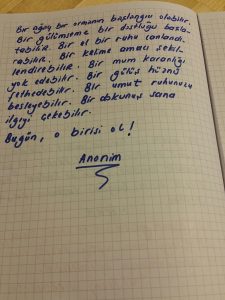 Bir ağaç bir ormanın başlangıcı olabilir.
Bir gülümseme bir dostluğu başla-
tabilir. Bir el bir ruhu canlandı-
rabilir. Bir kelime amacı şekil-
lendirebilir. Bir mum karanlığı
yok edebilir. Bir gülüş hüznü
fethedebilir. Bir umut ruhunuzu
besleyebilir. Bir dokunuş sana
ilgiyi çekebilir.
Bugün, o birisi ol!
Anonim